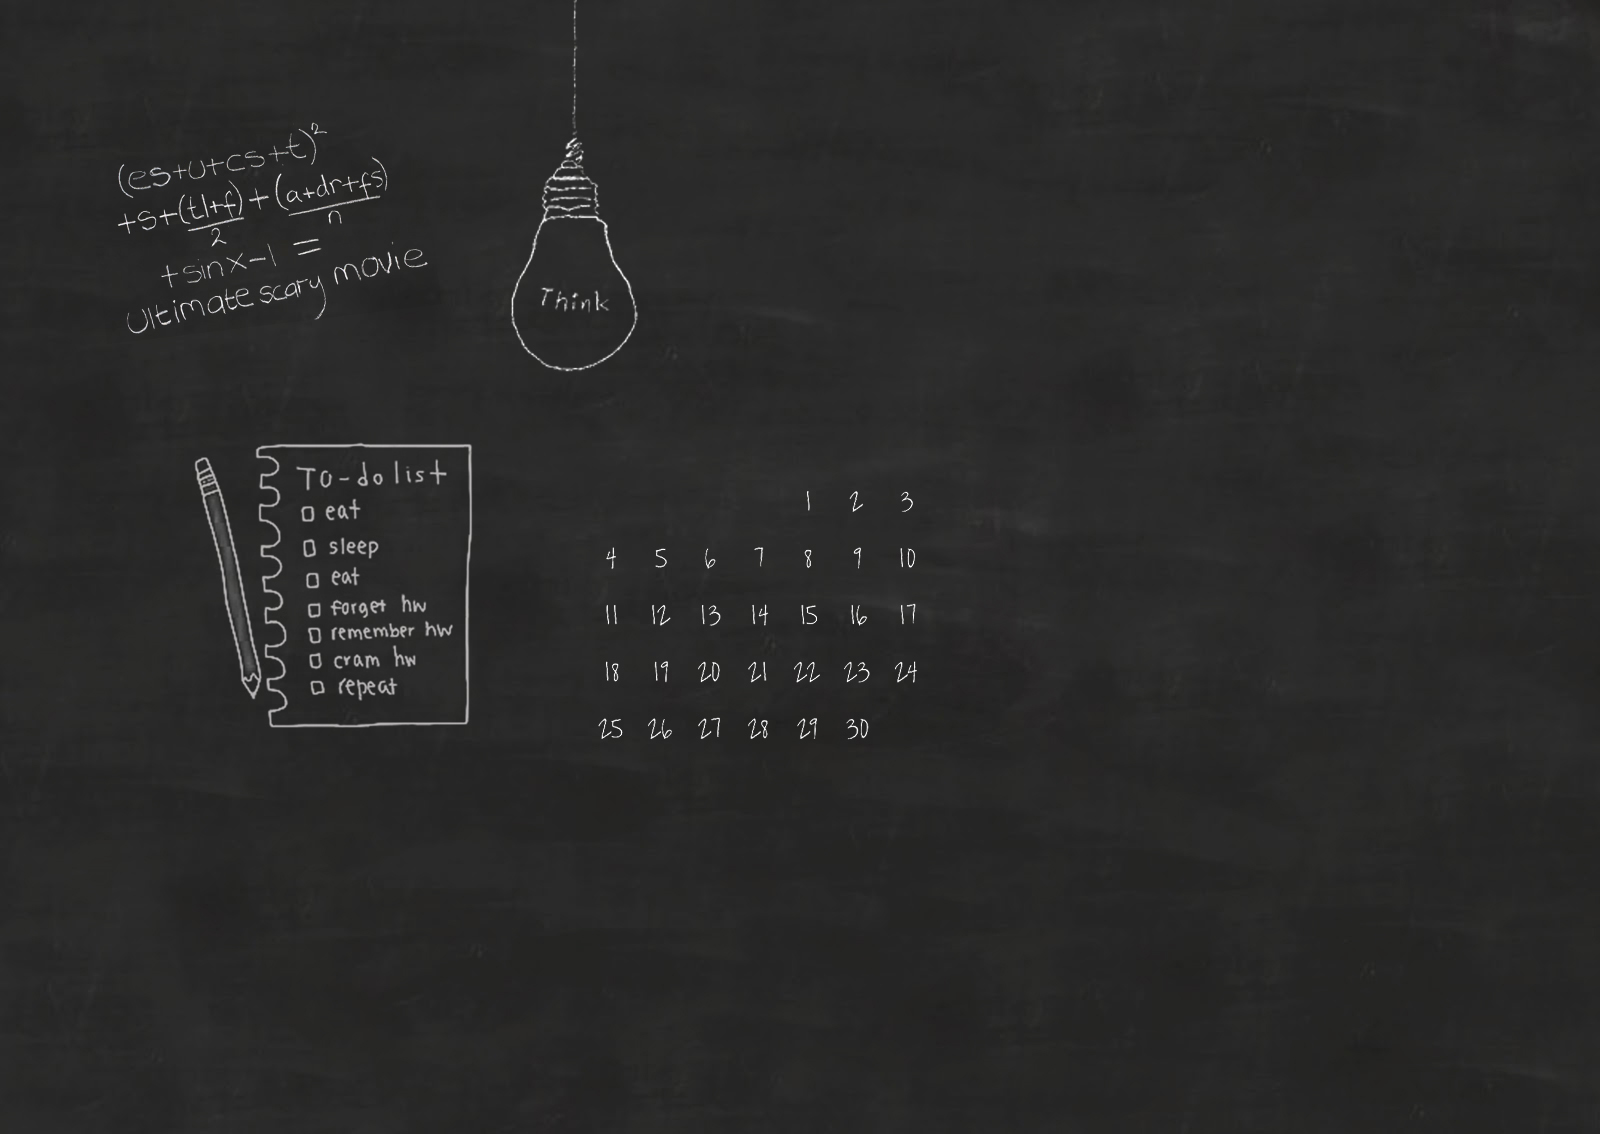 (es+u+cs+t)²
+s+(tl+f)/2+(a+dr+fs)/n
+sinx-1 =
ultimate scary movie
Think
To-do list
eat
sleep
eat
forget hw
remember hw
cram hw
repeat
1 2 3
4 5 6 7 8 9 10
11 12 13 14 15 16 17
18 19 20 21 22 23 24
25 26 27 28 29 30